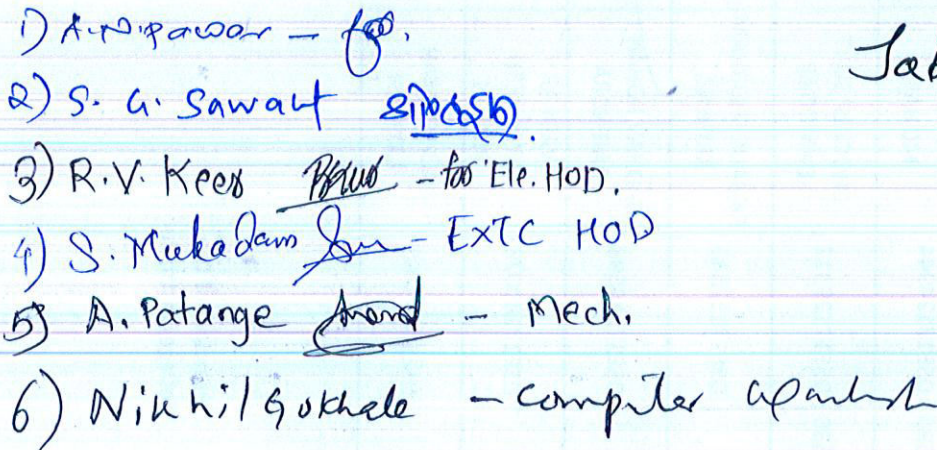 1) A.N. Pawar -
Jab
2) S. G. Sawant
3) R.V. Keer - for Ele. HOD.
4) S. Mukadam - EXTC HOD
5) A. Patange Anand - Mech.
6) Nikhil Gokhale - Computer